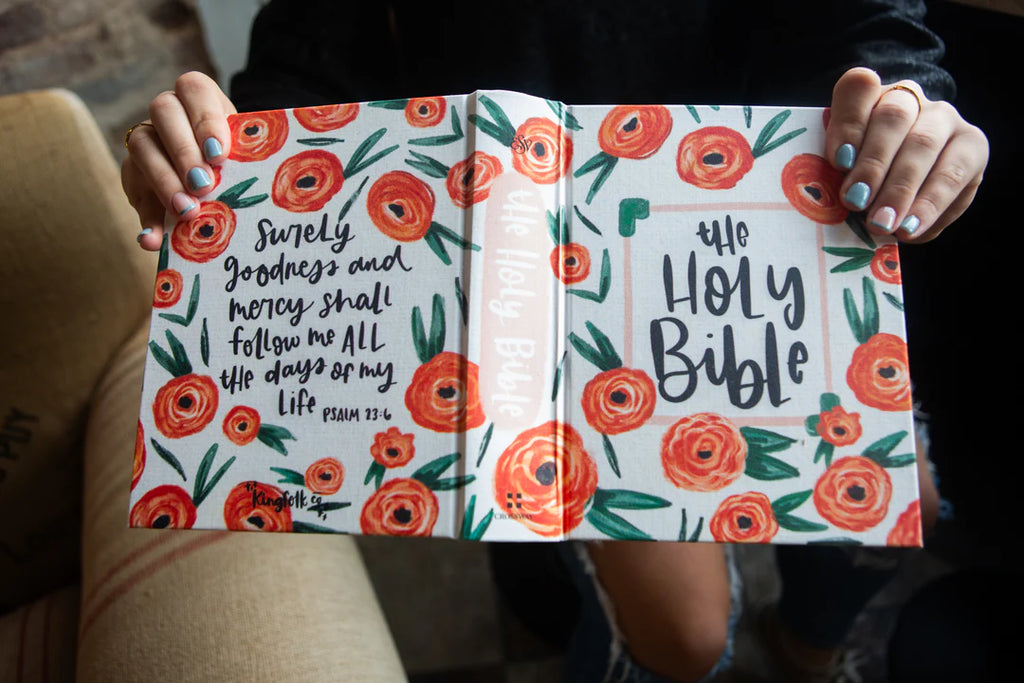 Surely
goodness and
mercy shall
follow me ALL
the days of my
life PSALM 23:6
the
Kingfolk co
the Holy Bible
CROSSWAY
the
Holy
Bible